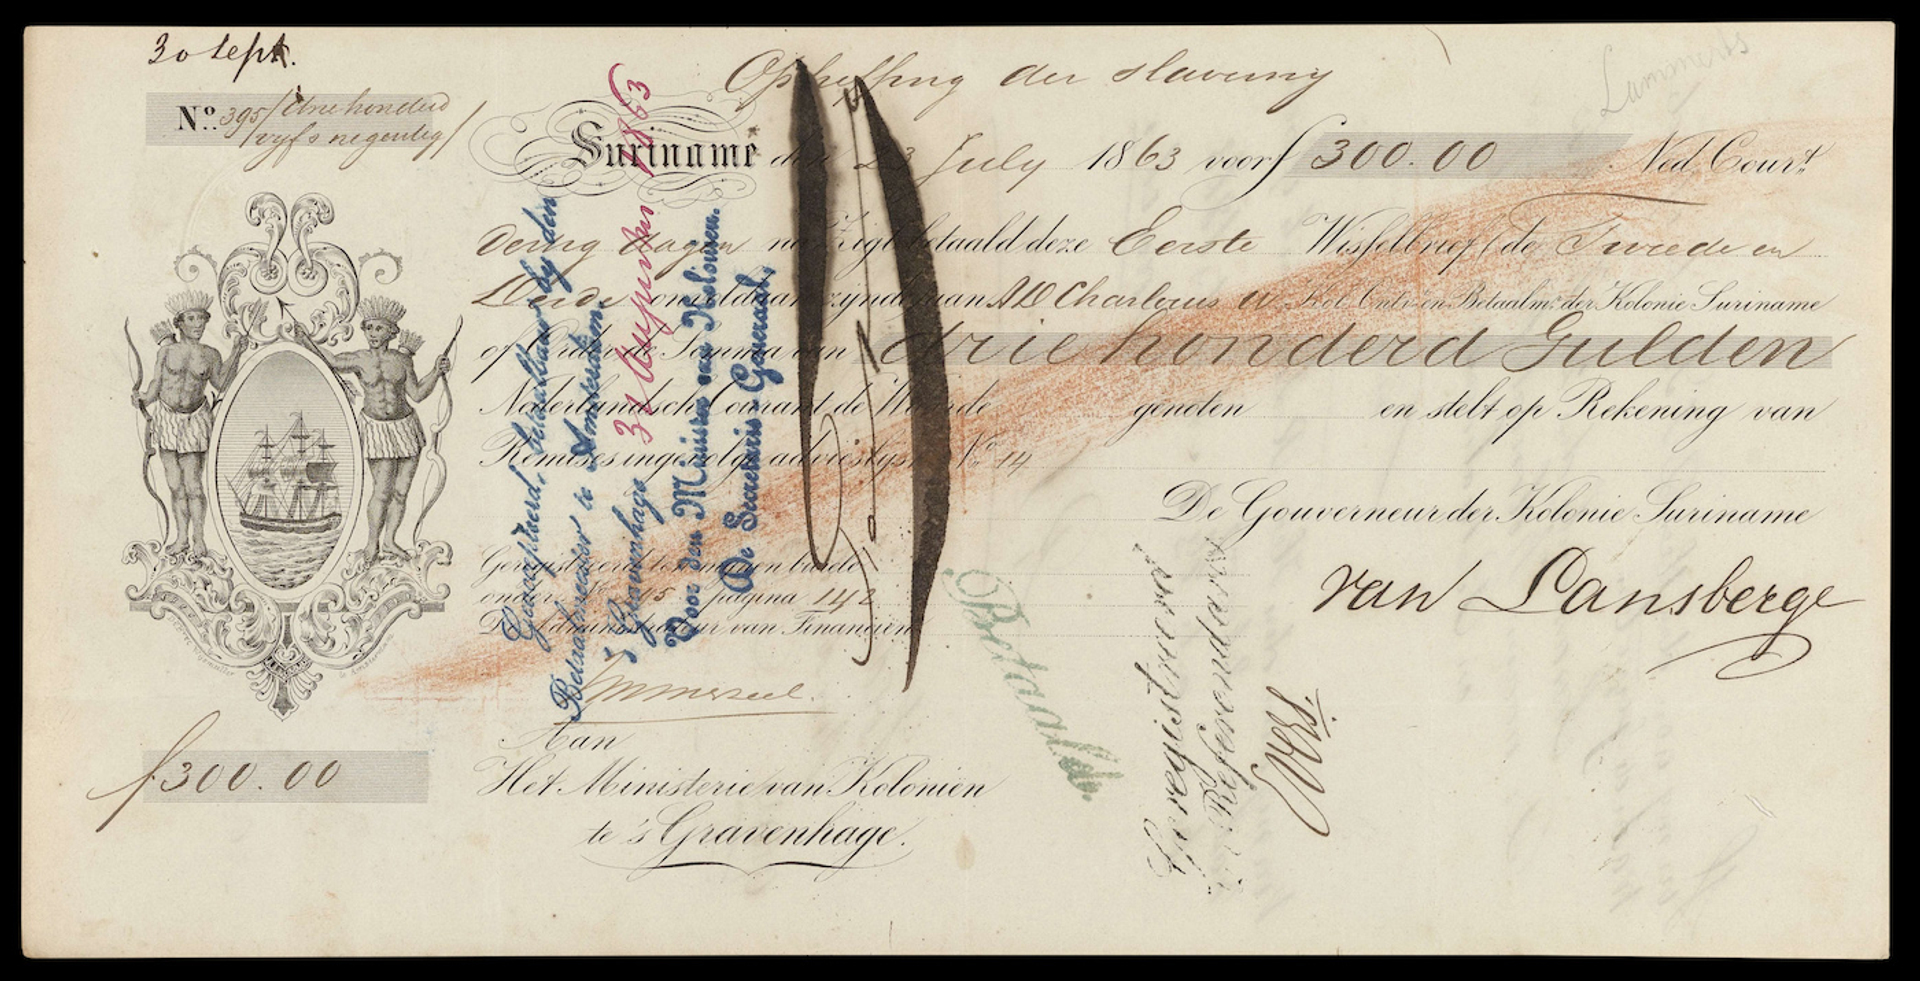 30 Sept.
Opheffing der slaverny
Lammerts
No. 395 / drie honderd
vijf & negentig /
Suriname den 23 July 1863 voor f 300.00 Ned. Court.
dertig dagen na Zigt betaald deze Eerste Wisselbrief (de Tweede en
Derde onvoldaan zynde) aan AD Charbous Kol. Ontv. en Betaalmr. der Kolonie Suriname
of Order de Somma van drie honderd Gulden
Nederlandsch Courant de Waarde genoten en stelt op Rekening van
Remises ingevolge advieslyst No. 14
De Gouverneur der Kolonie Suriname
van Lansberge
Geregistreerd ten mynen burele
onder No. 395 pagina 142
De Administrateur van Financien
Aan
Het Ministerie van Kolonien
te 's Gravenhage.
f 300.00
Geaccepteerd, betaalbaar by den
Betaalmeester te Amsterdam.
31 Augustus 1863
's Gravenhage
Voor den Minister van Kolonien.
De Secretaris Generaal,
Betaald.
Geregistreerd
De Referendaris
Evers.